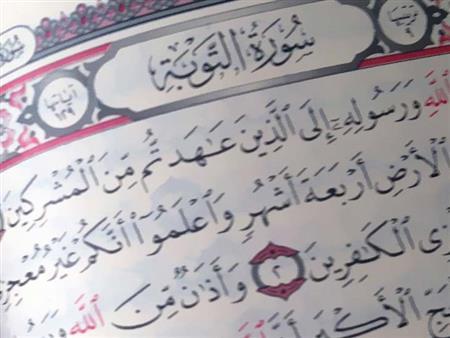 ترتيبها ٩
سُورَةُ التَّوْبَةِ
آياتها ١٢٩
ٱللَّهِ وَرَسُولِهِۦٓ إِلَى ٱلَّذِينَ عَـٰهَدتُّم مِّنَ ٱلْمُشْرِكِينَ
ٱلْأَرْضِ أَرْبَعَةَ أَشْهُرٍ وَٱعْلَمُوٓا۟ أَنَّكُمْ غَيْرُ مُعْجِزِي
ٱلْكَـٰفِرِينَ ٢ وَأَذَٰنٌ مِّنَ ٱللَّهِ
ٱلْأَكْبَرِ أَنَّ